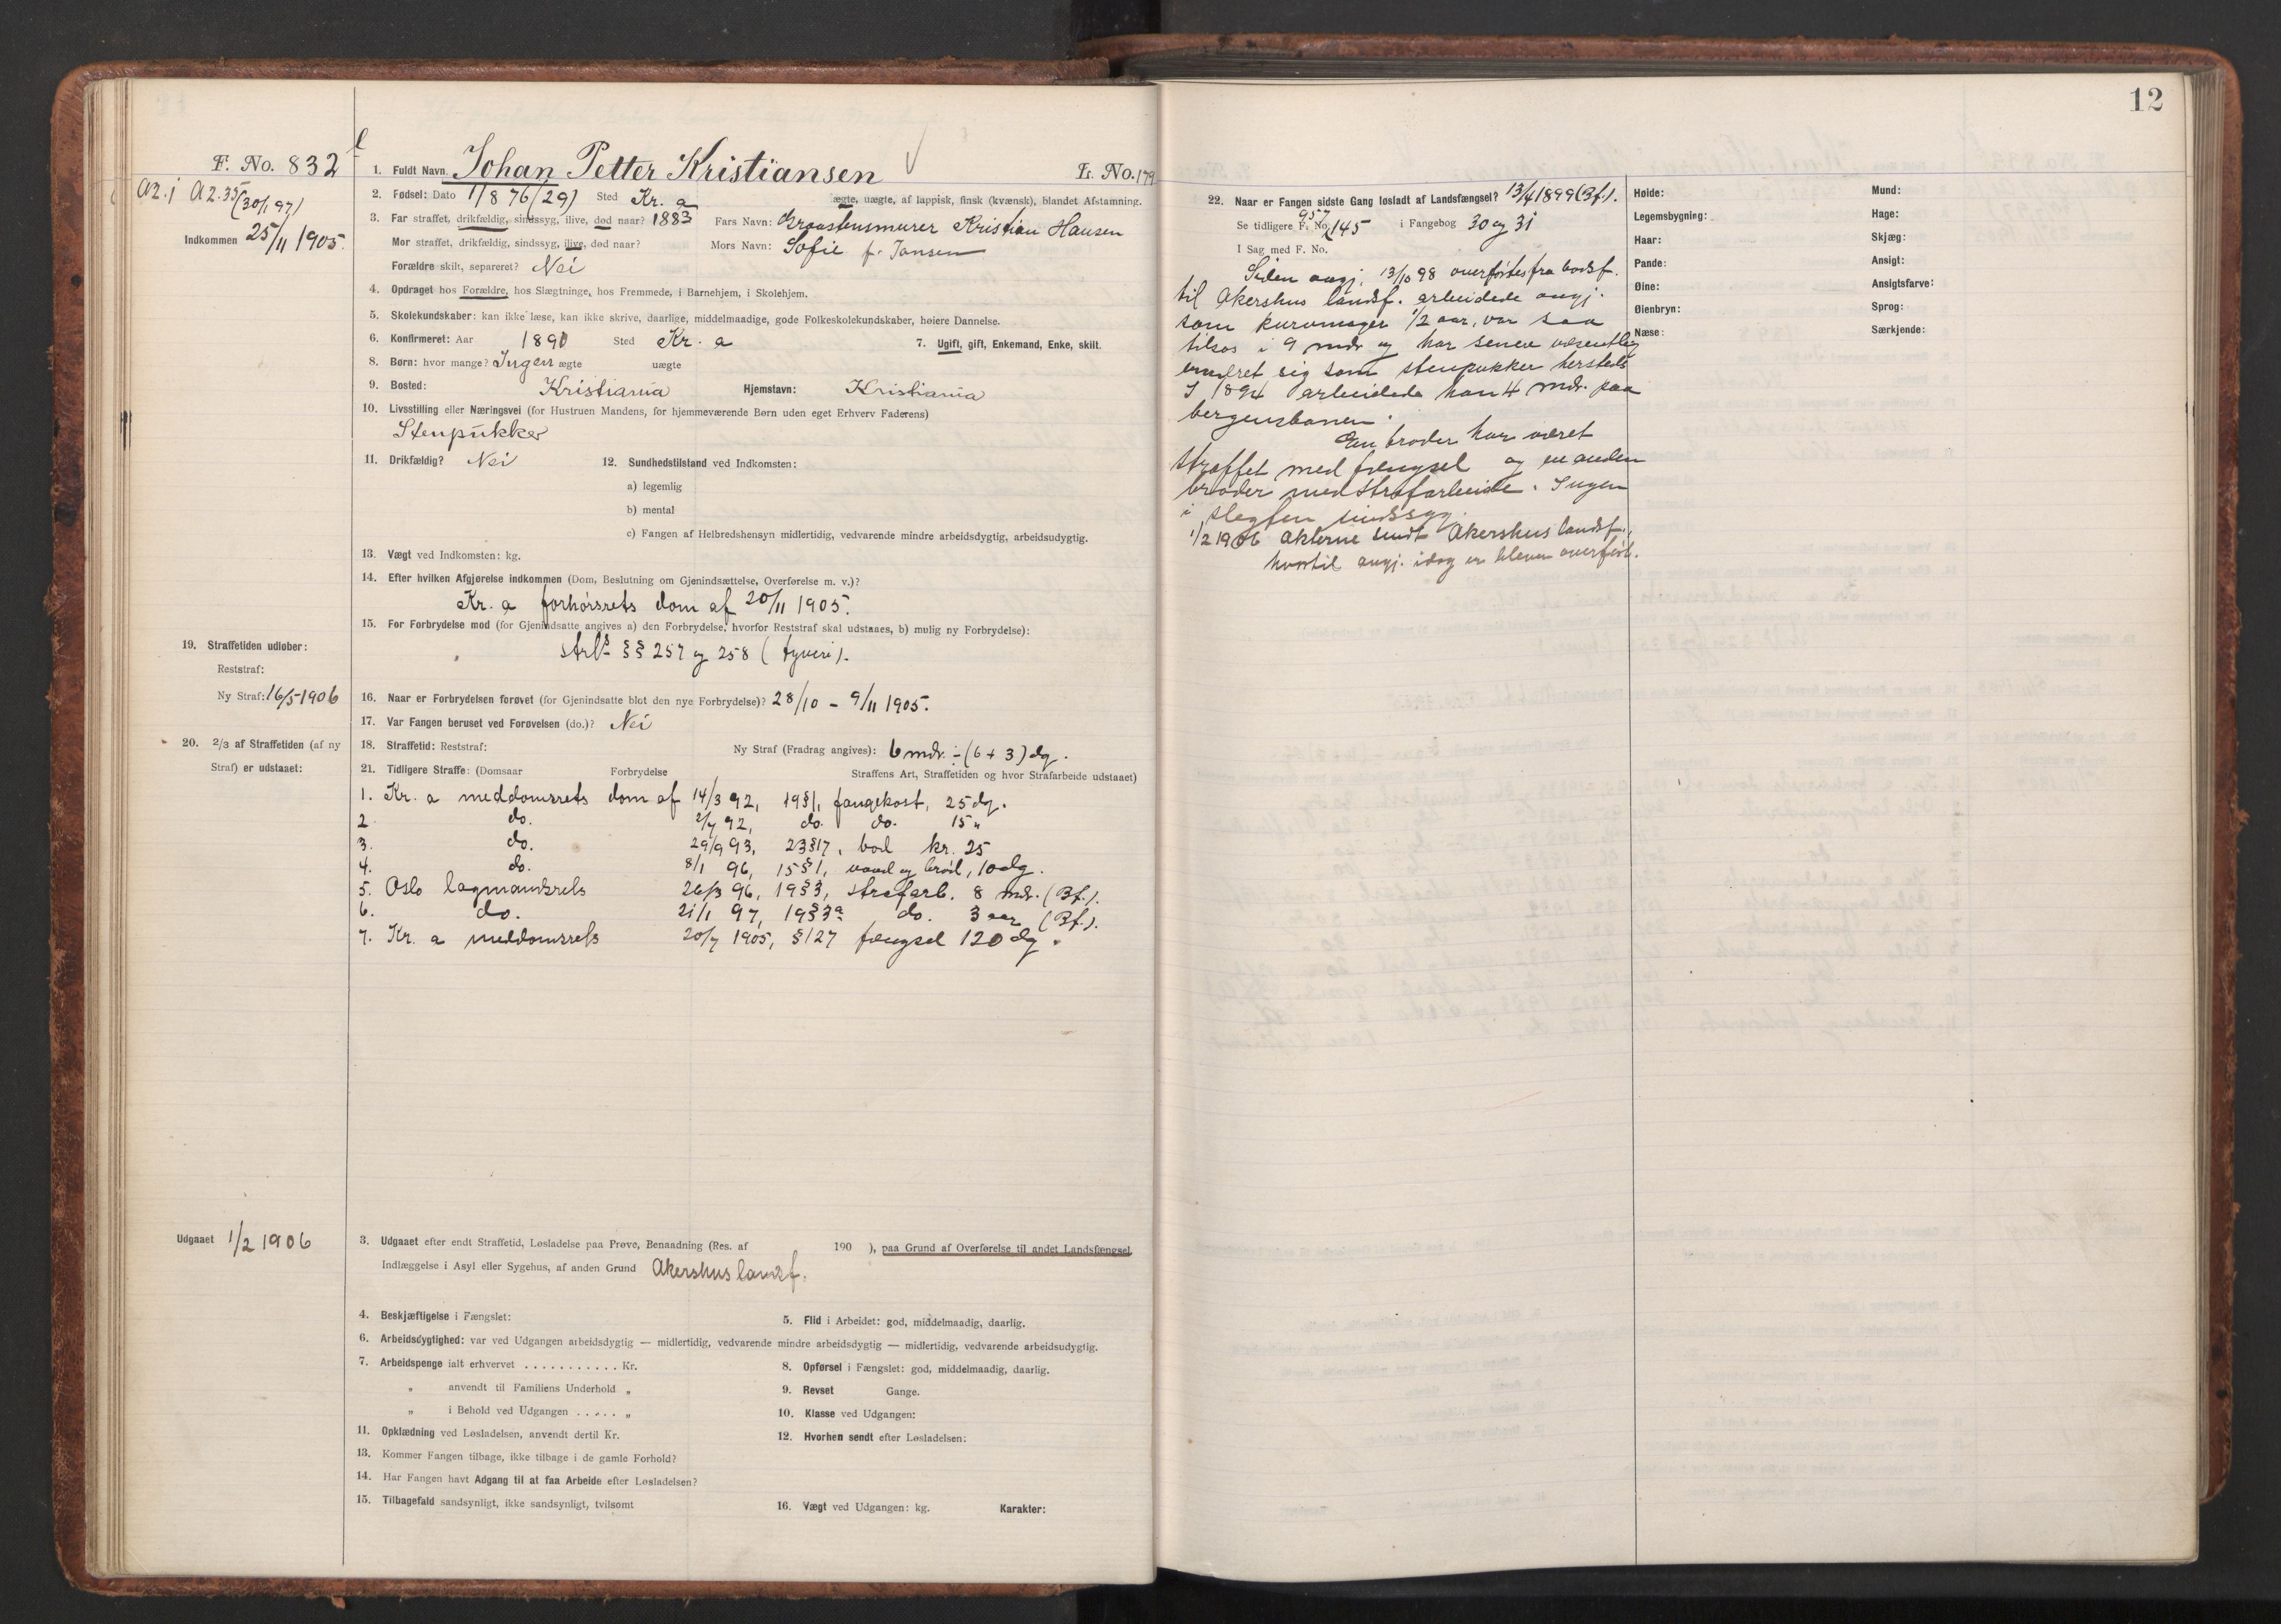 12
F. No. 832
1. Fuldt Navn. Johan Petter Kristiansen L. No. 179
A2.j A2.35 (30/1 97)
Indkommen 25/11 1905.
2. Fødsel: Dato 1/8 76 (29) Sted Kr. a ægte, uægte, af lappisk, finsk (kvænsk), blandet Afstamning.
3. Far straffet, drikfældig, sindssyg, ilive, død naar? 1883 Fars Navn: Kristian Hansen
Mor straffet, drikfældig, sindssyg, ilive, død naar? Mors Navn: Sofie f. Jansen
Forældre skilt, separeret? Nei
4. Opdraget hos Forældre, hos Slægtninge, hos Fremmede, i Barnehjem, i Skolehjem.
5. Skolekundskaber: kan ikke læse, kan ikke skrive, daarlige, middelmaadige, gode Folkeskolekundskaber, høiere Dannelse.
6. Konfirmeret: Aar 1891 Sted Kr. a 7. Ugift, gift, Enkemand, Enke, skilt.
8. Børn: hvor mange? Ingen ægte uægte
9. Bosted: Kristiania Hjemstavn: Kristiania
10. Livsstilling eller Næringsvei (for Hustruen Mandens, for hjemmeværende Børn uden eget Erhverv Faderens)
Stenpukker
11. Drikfældig? Nei 12. Sundhedstilstand ved Indkomsten:
a) legemlig
b) mental
c) Fangen af Helbredshensyn midlertidig, vedvarende mindre arbeidsdygtig, arbeidsudygtig.
13. Vægt ved Indkomsten: kg.
14. Efter hvilken Afgjørelse indkommen (Dom, Beslutning om Gjenindsættelse, Overførelse m. v.)?
Kr. a forhørsrets dom af 20/11 1905.
15. For Forbrydelse mod (for Gjenindsatte angives a) den Forbrydelse, hvorfor Reststraf skal udstaaes, b) mulig ny Forbrydelse):
strl. §§ 257 og 258 (tyveri).
19. Straffetiden udløber:
Reststraf:
Ny Straf: 16/5 1906
16. Naar er Forbrydelsen forøvet (for Gjenindsatte blot den nye Forbrydelse)? 28/10 - 9/11 1905.
17. Var Fangen beruset ved Forøvelsen (do.)? Nei
20. 2/3 af Straffetiden (af ny Straf) er udstaaet:
18. Straffetid: Reststraf: Ny Straf (Fradrag angives): 6 mdr. ÷ (6 + 3) dg.
21. Tidligere Straffe: (Domsaar Forbrydelse Straffens Art, Straffetiden og hvor Strafarbeide udstaaet)
1. Kr. a meddomsrets dom af 14/3 92, 19§1, fangekost, 25 dg.
2 do. 2/7 92, do. do. 15 "
3. do. 29/9 93, 23§17, bod kr. 25
4. do. 8/1 96, 15§1, vand og brød, 10 dg.
5. Oslo lagmandsrets 26/3 96, 19§3, strafarb. 8 mdr. (Bf.).
6. do. 21/1 97, 19§3a do. 3 aar (Bf.).
7. Kr. a meddomsrets 20/7 1905, §127 fængsel 120 dg.
Udgaaet 1/2 1906
3. Udgaaet efter endt Straffetid, Løsladelse paa Prøve, Benaadning (Res. af 190 ), paa Grund af Overførelse til andet Landsfængsel,
Indlæggelse i Asyl eller Sygehus, af anden Grund Akershus landsf.
4. Beskjæftigelse i Fængslet: 5. Flid i Arbeidet: god, middelmaadig, daarlig.
6. Arbeidsdygtighed: var ved Udgangen arbeidsdygtig — midlertidig, vedvarende mindre arbeidsdygtig — midlertidig, vedvarende arbeidsudygtig.
7. Arbeidspenge ialt erhvervet ........... Kr. 8. Opførsel i Fængslet: god, middelmaadig, daarlig.
" anvendt til Familiens Underhold " 9. Revset Gange.
" i Behold ved Udgangen ..... " 10. Klasse ved Udgangen:
11. Opklædning ved Løsladelsen, anvendt dertil Kr. 12. Hvorhen sendt efter Løsladelsen:
13. Kommer Fangen tilbage, ikke tilbage i de gamle Forhold?
14. Har Fangen havt Adgang til at faa Arbeide efter Løsladelsen?
15. Tilbagefald sandsynligt, ikke sandsynligt, tvilsomt 16. Vægt ved Udgangen: kg. Karakter:
22. Naar er Fangen sidste Gang løsladt af Landsfængsel? 13/4 1899 (Bf.).
Se tidligere F. No. 957 145 i Fangebog 30 og 31
I Sag med F. No.
Siden angj. 13/10 98 overførtes fra bodsf.
til Akershus landsf. arbeidede angj.
som kurvmager 1/2 aar, var saa
tilsøs i 9 mdr og har senere væsentlig
ernæret sig som stenpukker hersteds
I 1894 arbeidede han 4 mdr. paa
bergensbanen.
En broder har været
straffet med fængsel og en anden
broder med strafarbeide. Ingen
i slegten sindssyg.
1/2 1906 Akterne sendt Akershus landsf.,
hvortil angj. idag er bleven overført.
Høide: Mund:
Legemsbygning: Hage:
Haar: Skjæg:
Pande: Ansigt:
Øine: Ansigtsfarve:
Øienbryn: Sprog:
Næse: Særkjende: